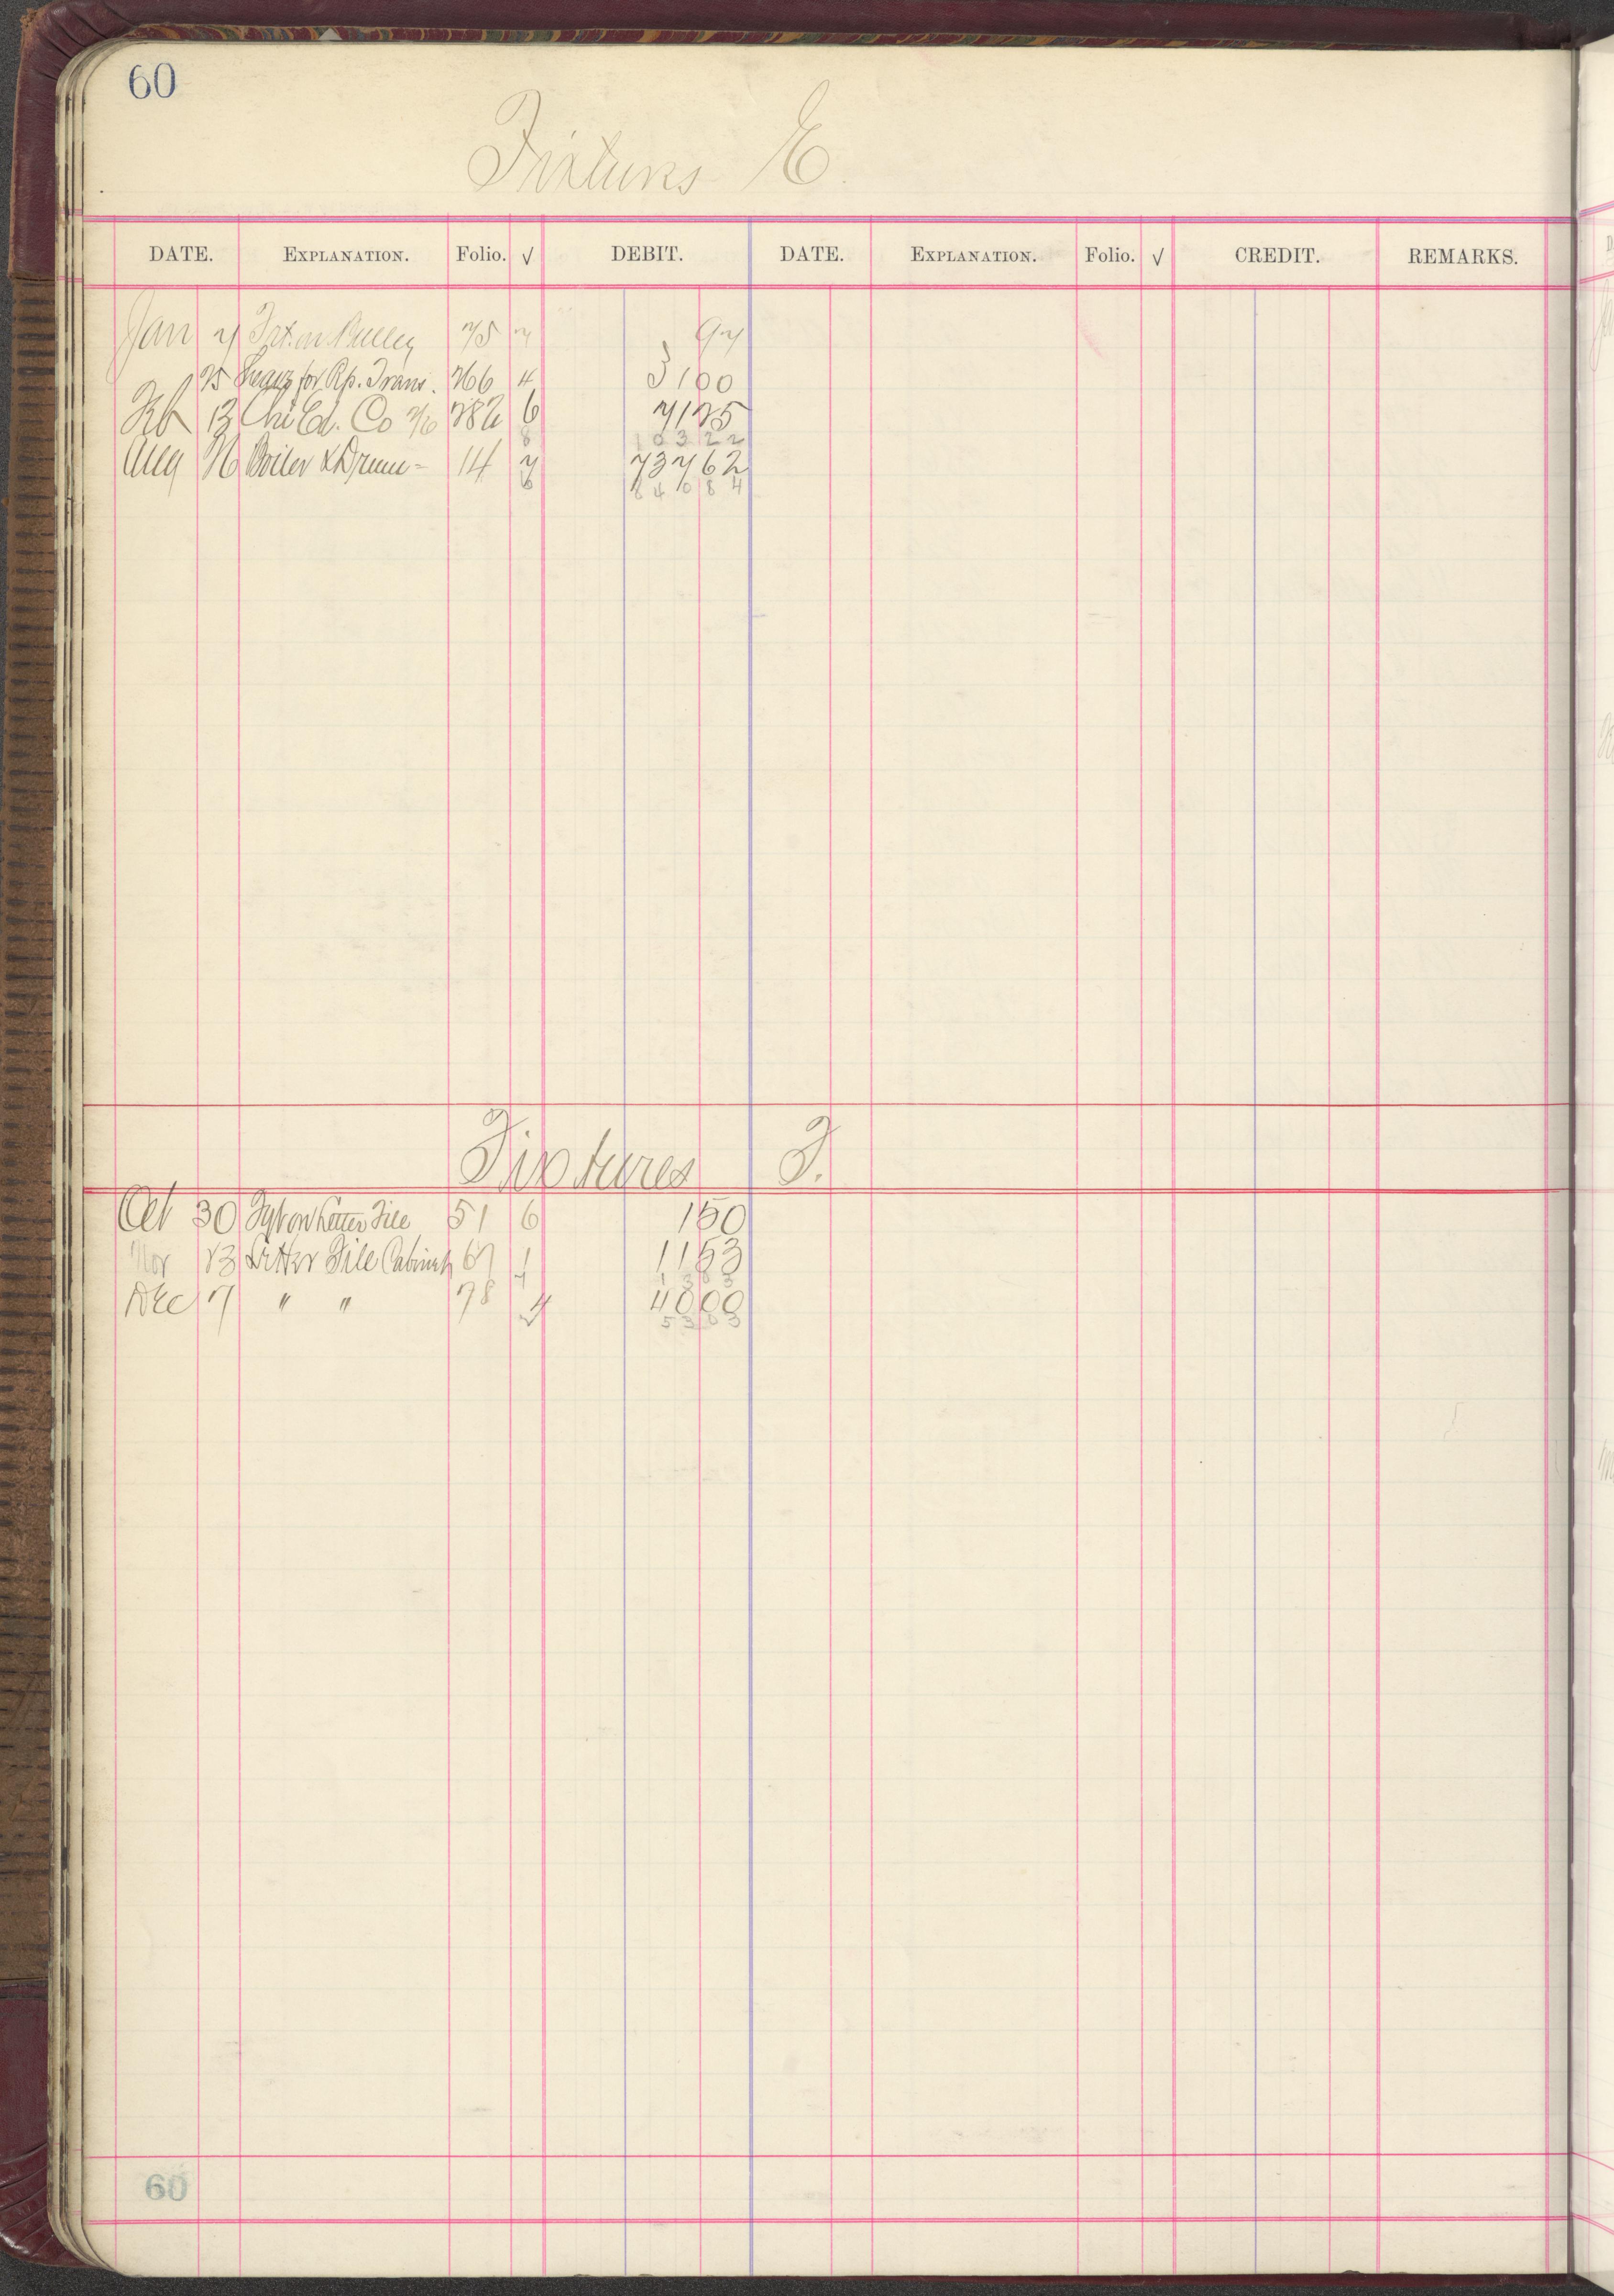 60
Fixtures E
DATE. EXPLANATION. Folio. √ DEBIT. DATE. EXPLANATION. Folio. √ CREDIT. REMARKS.
Jan 7 Frt. on Pulley 75 7 97
25 for Rp. Trans. 266 4 3100
Feb 13 Chi Ed. Co 2/6 282 6 7125
8 10322
Aug 26 Boiler & Drum 14 7 73762
6 84084
Fixtures F.
Oct 30 Frt on Letter File 51 6 150
Nov 23 Letter File Cabinet 67 1 1153
7 1303
Dec 7 " " 78 4 4000
2 5303
60